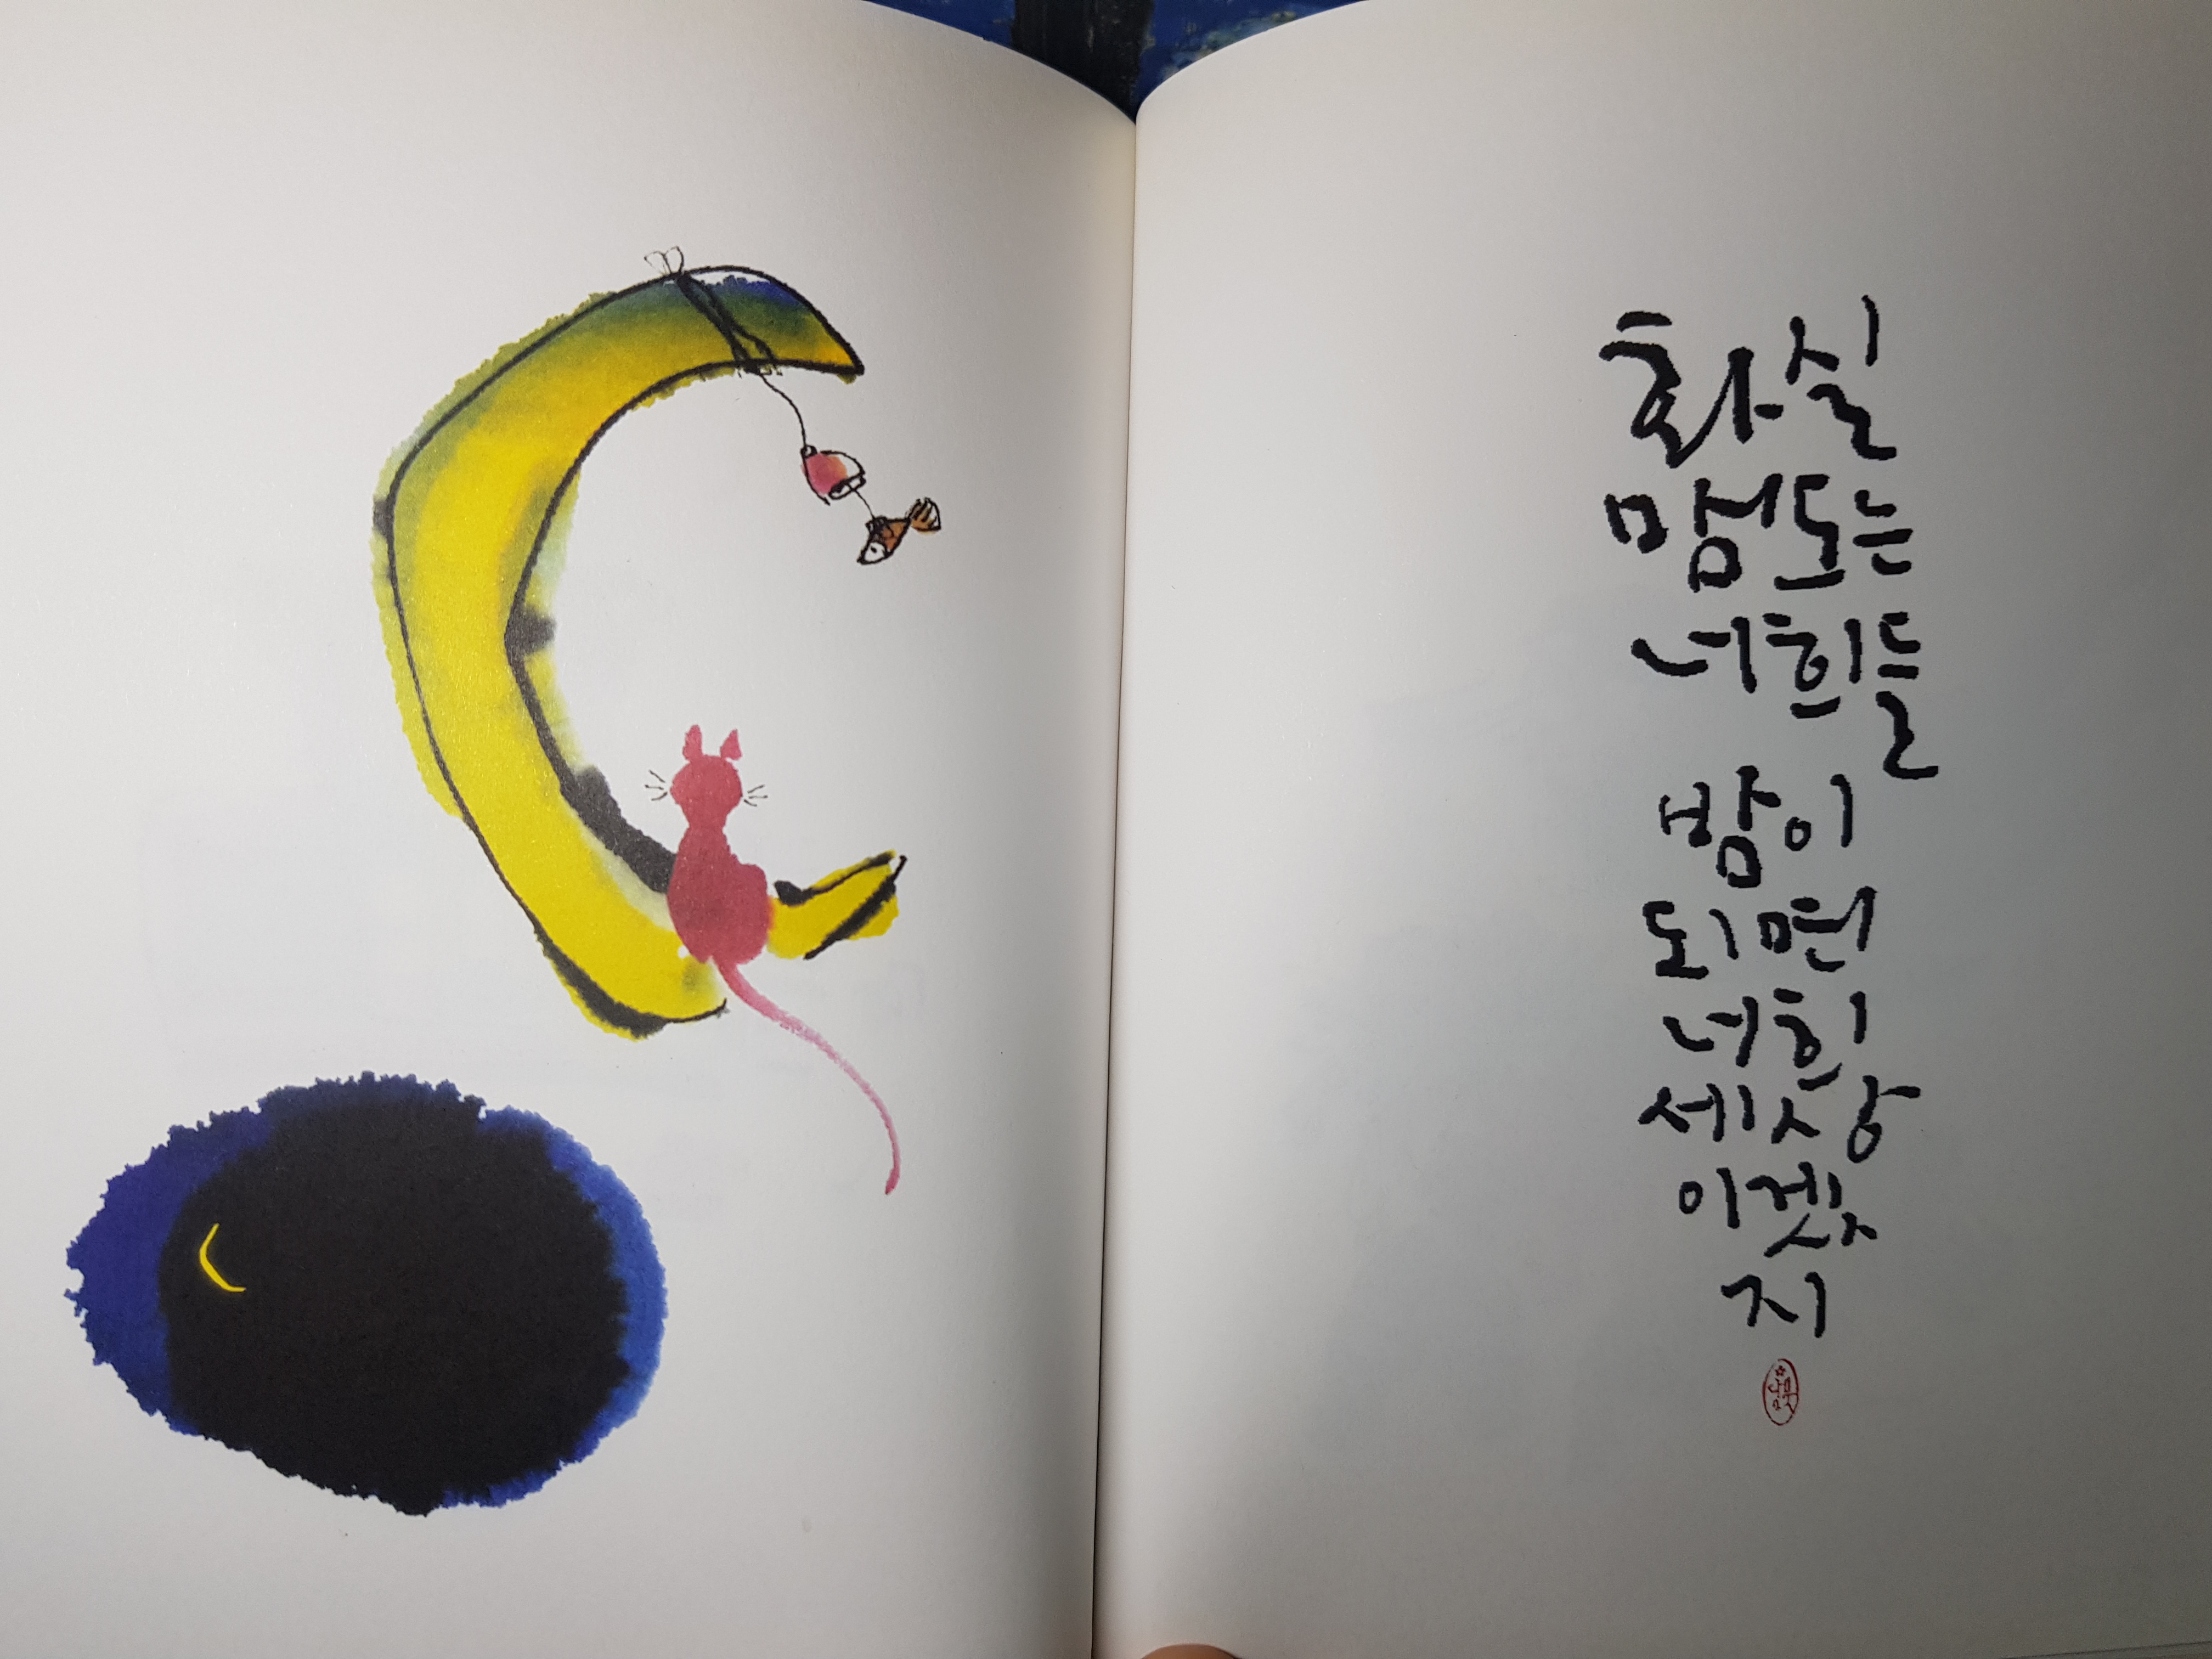 화실
맴도는
너희들
밤이
되면
너희
세상
이겠
지